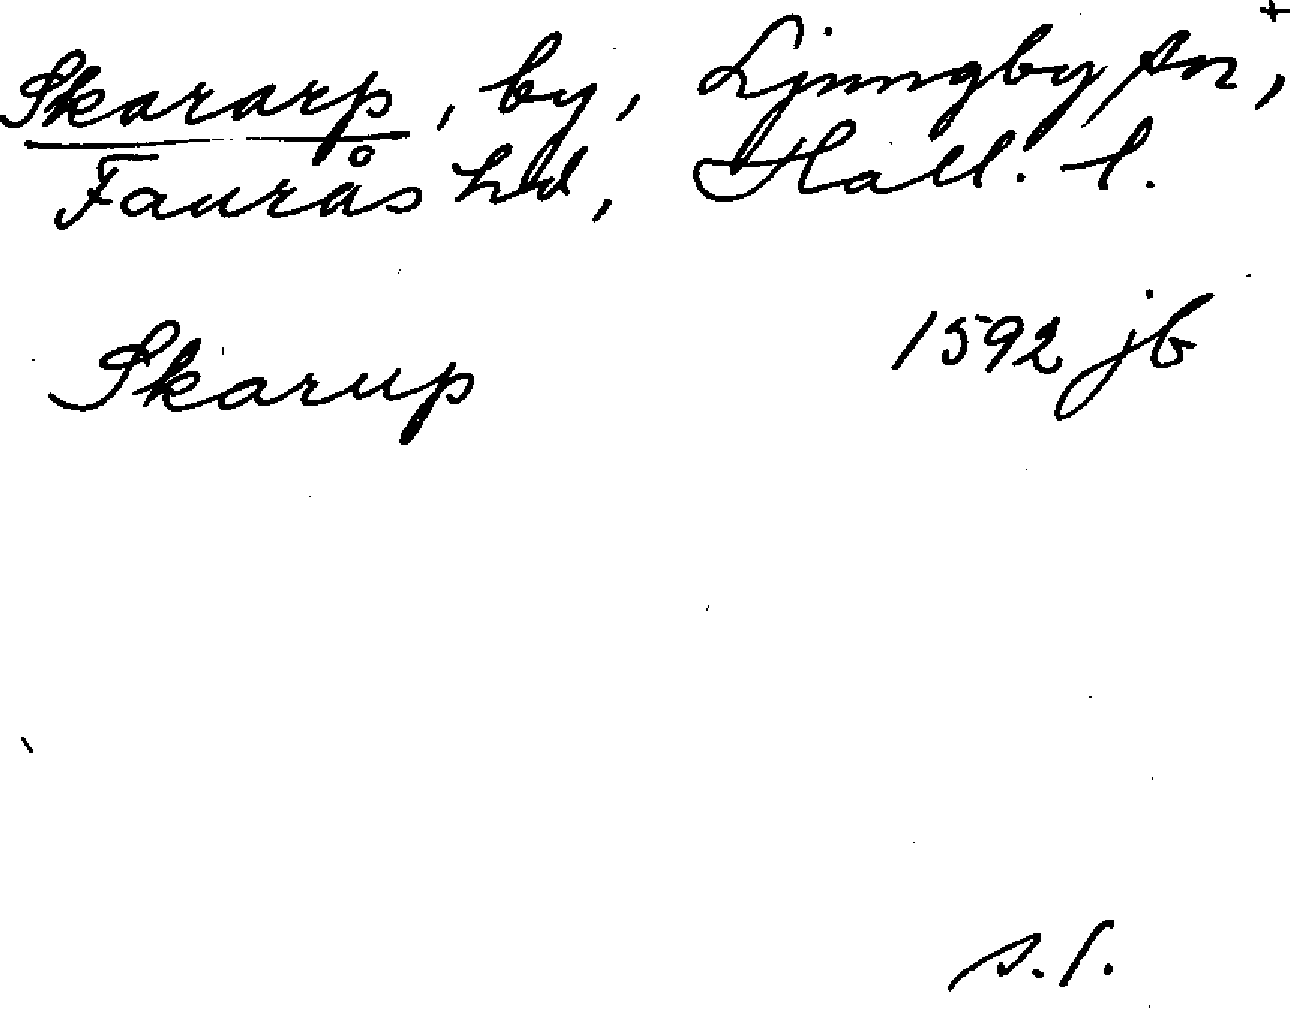 Skararp, by, Ljungby sn, +
Faurås hd, Hall. l.
Skarup 1592 jb
s. 1.